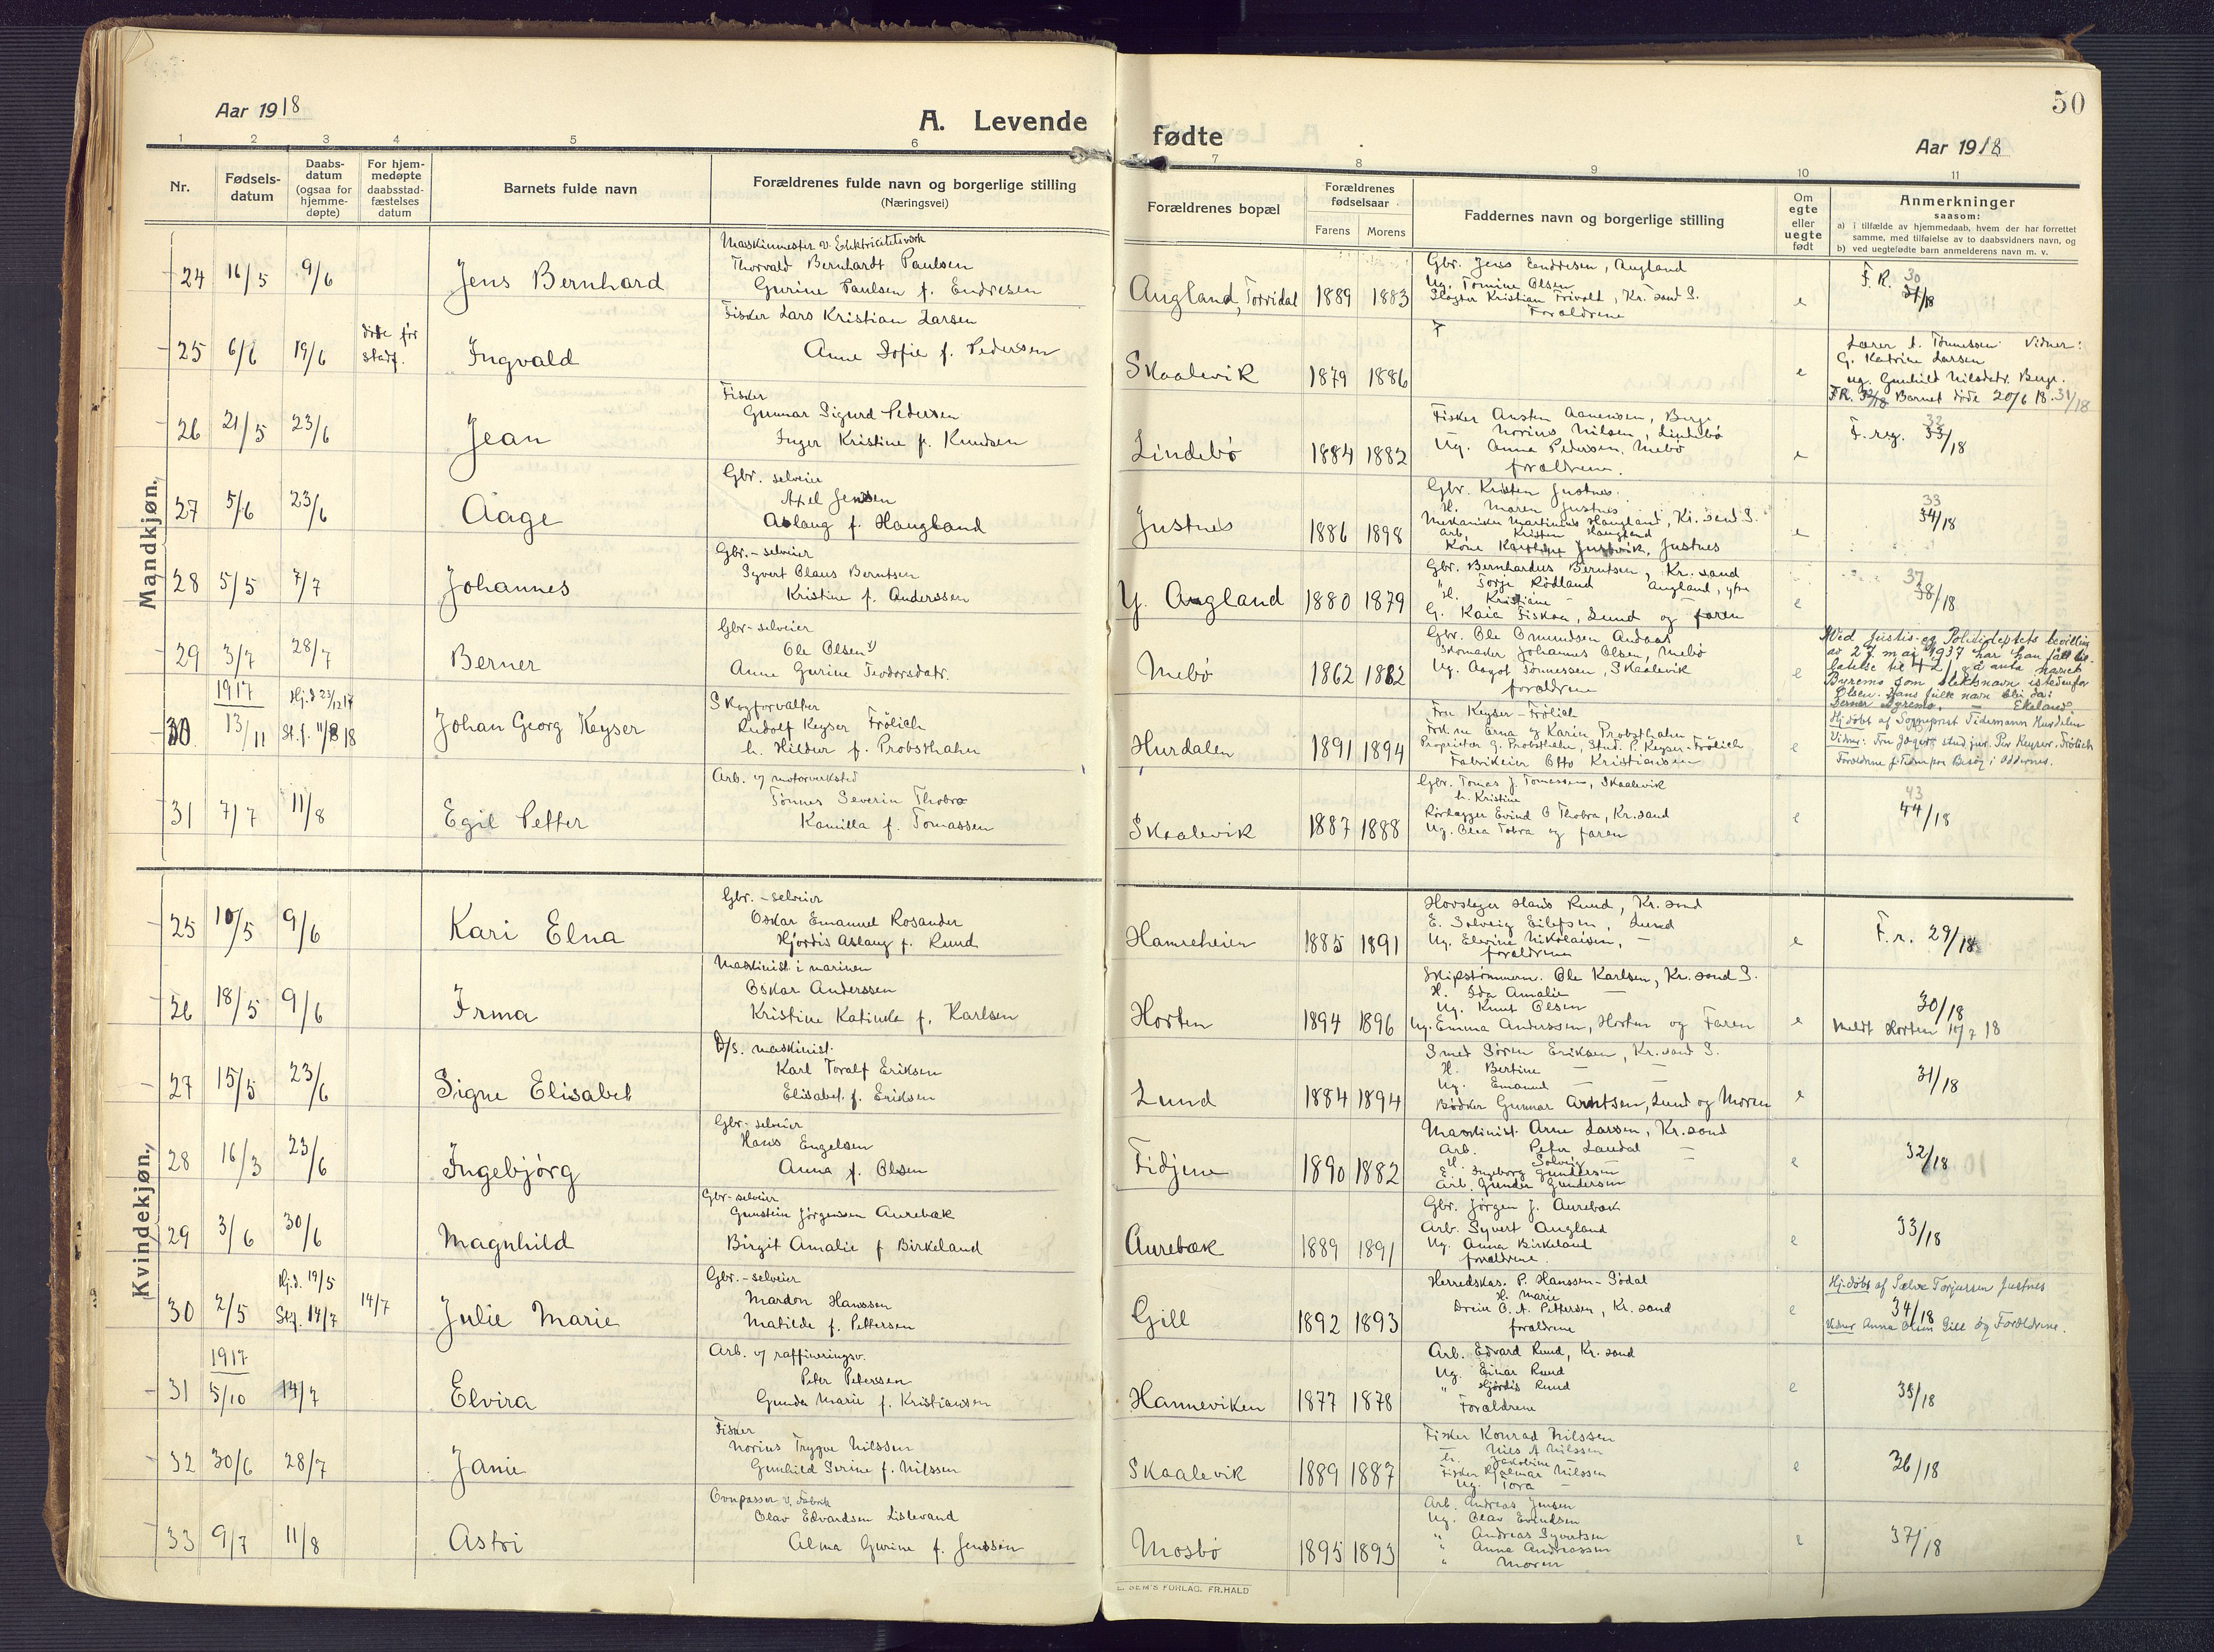 50
Aar 1918
A. Levende
fødte
Aar 1918
1 2 3 4 5 6
7 8 9 10 11
Nr.
Fødsels-
datum
Daabs-
datum
(ogsaa for
hjemme-
døpte)
For hjem-
medøpte
daabsstad-
fæstelses
datum
Barnets fulde navn
Forældrenes fulde navn og borgerlige stilling
(Næringsvei)
Forældrenes bopæl
Forældrenes
fødselsaar
Farens Morens
Faddernes navn og borgerlige stilling
Om
egte
eller
uegte
født
Anmerkninger
saasom:
a) i tilfælde av hjemmedaab, hvem der har forrettet
samme, med tilføielse av to daabsvidners navn, og
b) ved uegtefødte barn anmelderens navn m. v.
Mandkjøn.
24 16/5 9/6 Jens Bernhard
Maskinmester v. Elektricitetsverk
Thorvald Bernhardt Paulsen
Gurine Paulsen f. Endresen
Augland, Torridal 1889 1883
Gbr. Jens Endresen, Augland
Ug. Tomine Olsen
Slagter Kristian Frivolt, Kr. sand S.
Forældrene
e
F. R. 30
31/18
25 6/6 19/6
døde før
stadf.
Ingvald
Fisker Lars Kristian Larsen
Anne Sofie f. Pedersen
Skaalevik 1879 1886
e
Lærer S. Tønnessen Vidner:
G. Katrine Larsen
ug. Gunhild Nilsdatr. Berge.
F.R. 32/18 Barnet døde 20/6 18. 31/18
26 21/5 23/6 Jean
Fisker
Gunnar Sigurd Pedersen
Inger Kristine f. Knudsen
Lindebø 1884 1882
Fisker Austen Aanensen, Berge
Norius Nilsen, Lindebø
Ug. Anna Pedersen, Mebø
forældrene.
e
F. reg. 32
33/18
27 5/6 23/6 Aage
Gbr. selveier
Axel Jensen
Aslaug f. Haugland
Justnes 1886 1898
Gbr. Kristen Justnes.
H. Maren Justnes
Mekaniker Martinius Haugland, Kr. sand S.
Arb. Kristen Haugland
Kone Karoline Justvik, Justnes
e
33
34/18
28 5/5 7/7 Johannes
Gbr.-selveier
Syvert Claus Berntsen
Kristine f. Anderssen
Y. Augland 1880 1879
Gbr. Bernhardus Berntsen, Kr. sand
" Torje Rødland Augland, ytre
H. Kristiane
G. Kaia Fiskaa, Lund og faren
e
37
38/18
29 3/7 28/7 Berner
Gbr-selveier
Ole Olsen
Anne Gurine Teodorsdatr.
Mebø 1862 1882
Gbr. Ole Omundsen Andaas
Skomaker Johannes Olsen, Mebø
Ug. Aagot Tønnessen, Skaalevik
forældrene
e
Ved Justis- og Politideptets bevilling
av 27. mai 1937 har han fått til-
latelse til å anta navnet
Byremo som slektsnavn istedenfor
Olsen. Hans fulle navn blir da:
Berner Byremo.
1917
30 13/11
Hj.d. 23/12 17
St.f. 11/8 18
Johan Georg Keyser
Skogforvalter
Rudolf Keyser Frölich
h. Hildur f. Probsthahn
Hurdalen 1891 1894
Fru Keyser-Frölich
Frk.ne Erna og Karin Probsthahn
Proprietær G. Probsthahn, Stud. P. Keyser-Frölich
Fabrikeier Otto Kristiansen
e
Hj.døbt af Sogneprest Tidemann Hurdalen
Vidner: Fru Jæger, stud jur. Per Keyser-Frölich
Forældrene p. Besøg i Oddernes.
31 7/7 11/8 Egil Petter
Arb. v/ motorverksted
Tønnes Severin Thobro
Kamilla f. Tomassen
Skaalevik 1887 1888
Gbr. Tomas J. Tomassen, Skaalevik
h. Kristine
Rørlægger Eivind O Thobro, Kr.sand
Ug. Olea Tobra og faren
e
43
44/18
Kvindekjøn.
25 10/5 9/6 Kari Elna
Gbr.-selveier
Oskar Emanuel Rosander
Hjørdis Aslaug f. Ruud
Hamreheien 1885 1891
Hovslager Hans Ruud, Kr. sand
E. Solveig Eilefsen, Lund
Ug. Elevine Nikolaisen, —
forældrene
e
F.r. 29/18
26 18/5 9/6 Irma
Maskinist i marinen
Oskar Anderssen
Kristine Katinka f. Karlsen
Horten 1894 1896
Skipstømmerm. Ole Karlsen, Kr. sand S.
H. Ida Amalie —
Ug. Knut Olsen
Ug. Emma Anderssen, Horten og Faren
e
30/18
Meldt Horten 10/7 18
27 15/5 23/6 Signe Elisabet
D/s. maskinist.
Karl Toralf Eriksen
Elisabet f. Eriksen
Lund 1884 1894
Smed Søren Eriksen, Kr.sand S.
H. Bertine — —
Ug. Emanuel — —
Bødker Gunnar Arntsen, Lund og Moren
e
31/18
28 16/3 23/6 Ingebjørg
Gbr-selveier
Hans Engelsen
Anna f. Olsen
Fidjene 1890 1882
Maskinist Arne Larsen, Kr.sand
Arb. Peter Laudal —
H. Solveig —
E. Ingeborg Gundersen
Arb. Gunder Gundersen
e
32/18
29 3/6 30/6 Magnhild
Gbr-selveier
Gunstein Jørgensen Aurebæk
Birgit Amalie f Birkeland
Aurebæk 1889 1891
Gbr. Jørgen J. Aurebæk
Arb. Syvert Augland
Ug. Anna Birkeland
forældrene.
e
33/18
30 2/5
Hj.d. 19/5
Stf. 14/7
14/7
Julie Marie
Gbr.-selveier
Mardon Hanssen
Matilde f. Pettersen
Gill 1892 1893
Herredskas. P. Hanssen-Sødal
H. Marie
Dreier O. A. Pettersen, Kr. sand
forældrene
e
Hj.døbt af Sælve Torjussen Justnes
34/18
Vidner Anna Olsen Gill og Forældrene.
1917
31 5/10 14/7 Elvira
Arb. v/ raffineringsv.
Peter Peterssen
Gunda Marie f. Kristiansen
Hanneviken 1877 1878
Arb. Edvard Ruud, Kr. sand
Ug. Einar Ruud
" Hjørdis Ruud
Forældrene
e
35/18
32 30/6 28/7 Janie
Fisker
Norius Trygve Nilssen
Gunhild Serine f. Nilssen
Skaalevik 1889 1887
Fisker Konrad Nilssen
— Nils A Nilssen
h. Jakobine —
Fisker Hjalmar Nilssen
Ug. Tora —
e
36/18
33 9/7 11/8 Astri
Ovnpasser v. Fabrik
Olav Edvardsen Listevand
Alma Gurine f. Jenssen
Mosbø 1895 1893
Arb. Andreas Jensen
Ug. Olav Evindsen
" Andreas Syvertsen
" Anna Andreassen
" Moren
e
37/18
E. SEM'S FORLAG. FR.HALD